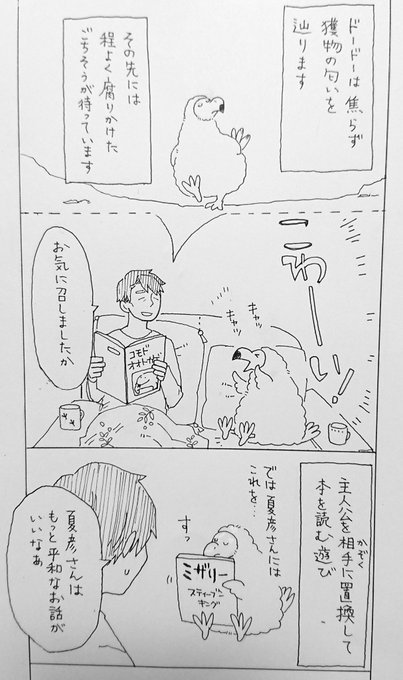 ドードーは焦らず
獲物の匂いを
辿ります
その先には
程よく腐りかけた
ごちそうが待っています
こわーい!
キャッ
キャッ
お気に召しましたか
コモド
オオトカゲ
主人公を相手に置換して
かぞく
本を読む遊び
では夏彦さんには
これを…
すっ
ミザリー
スティーブン
キング
夏彦さんは
もっと平和なお話が
いいなぁ